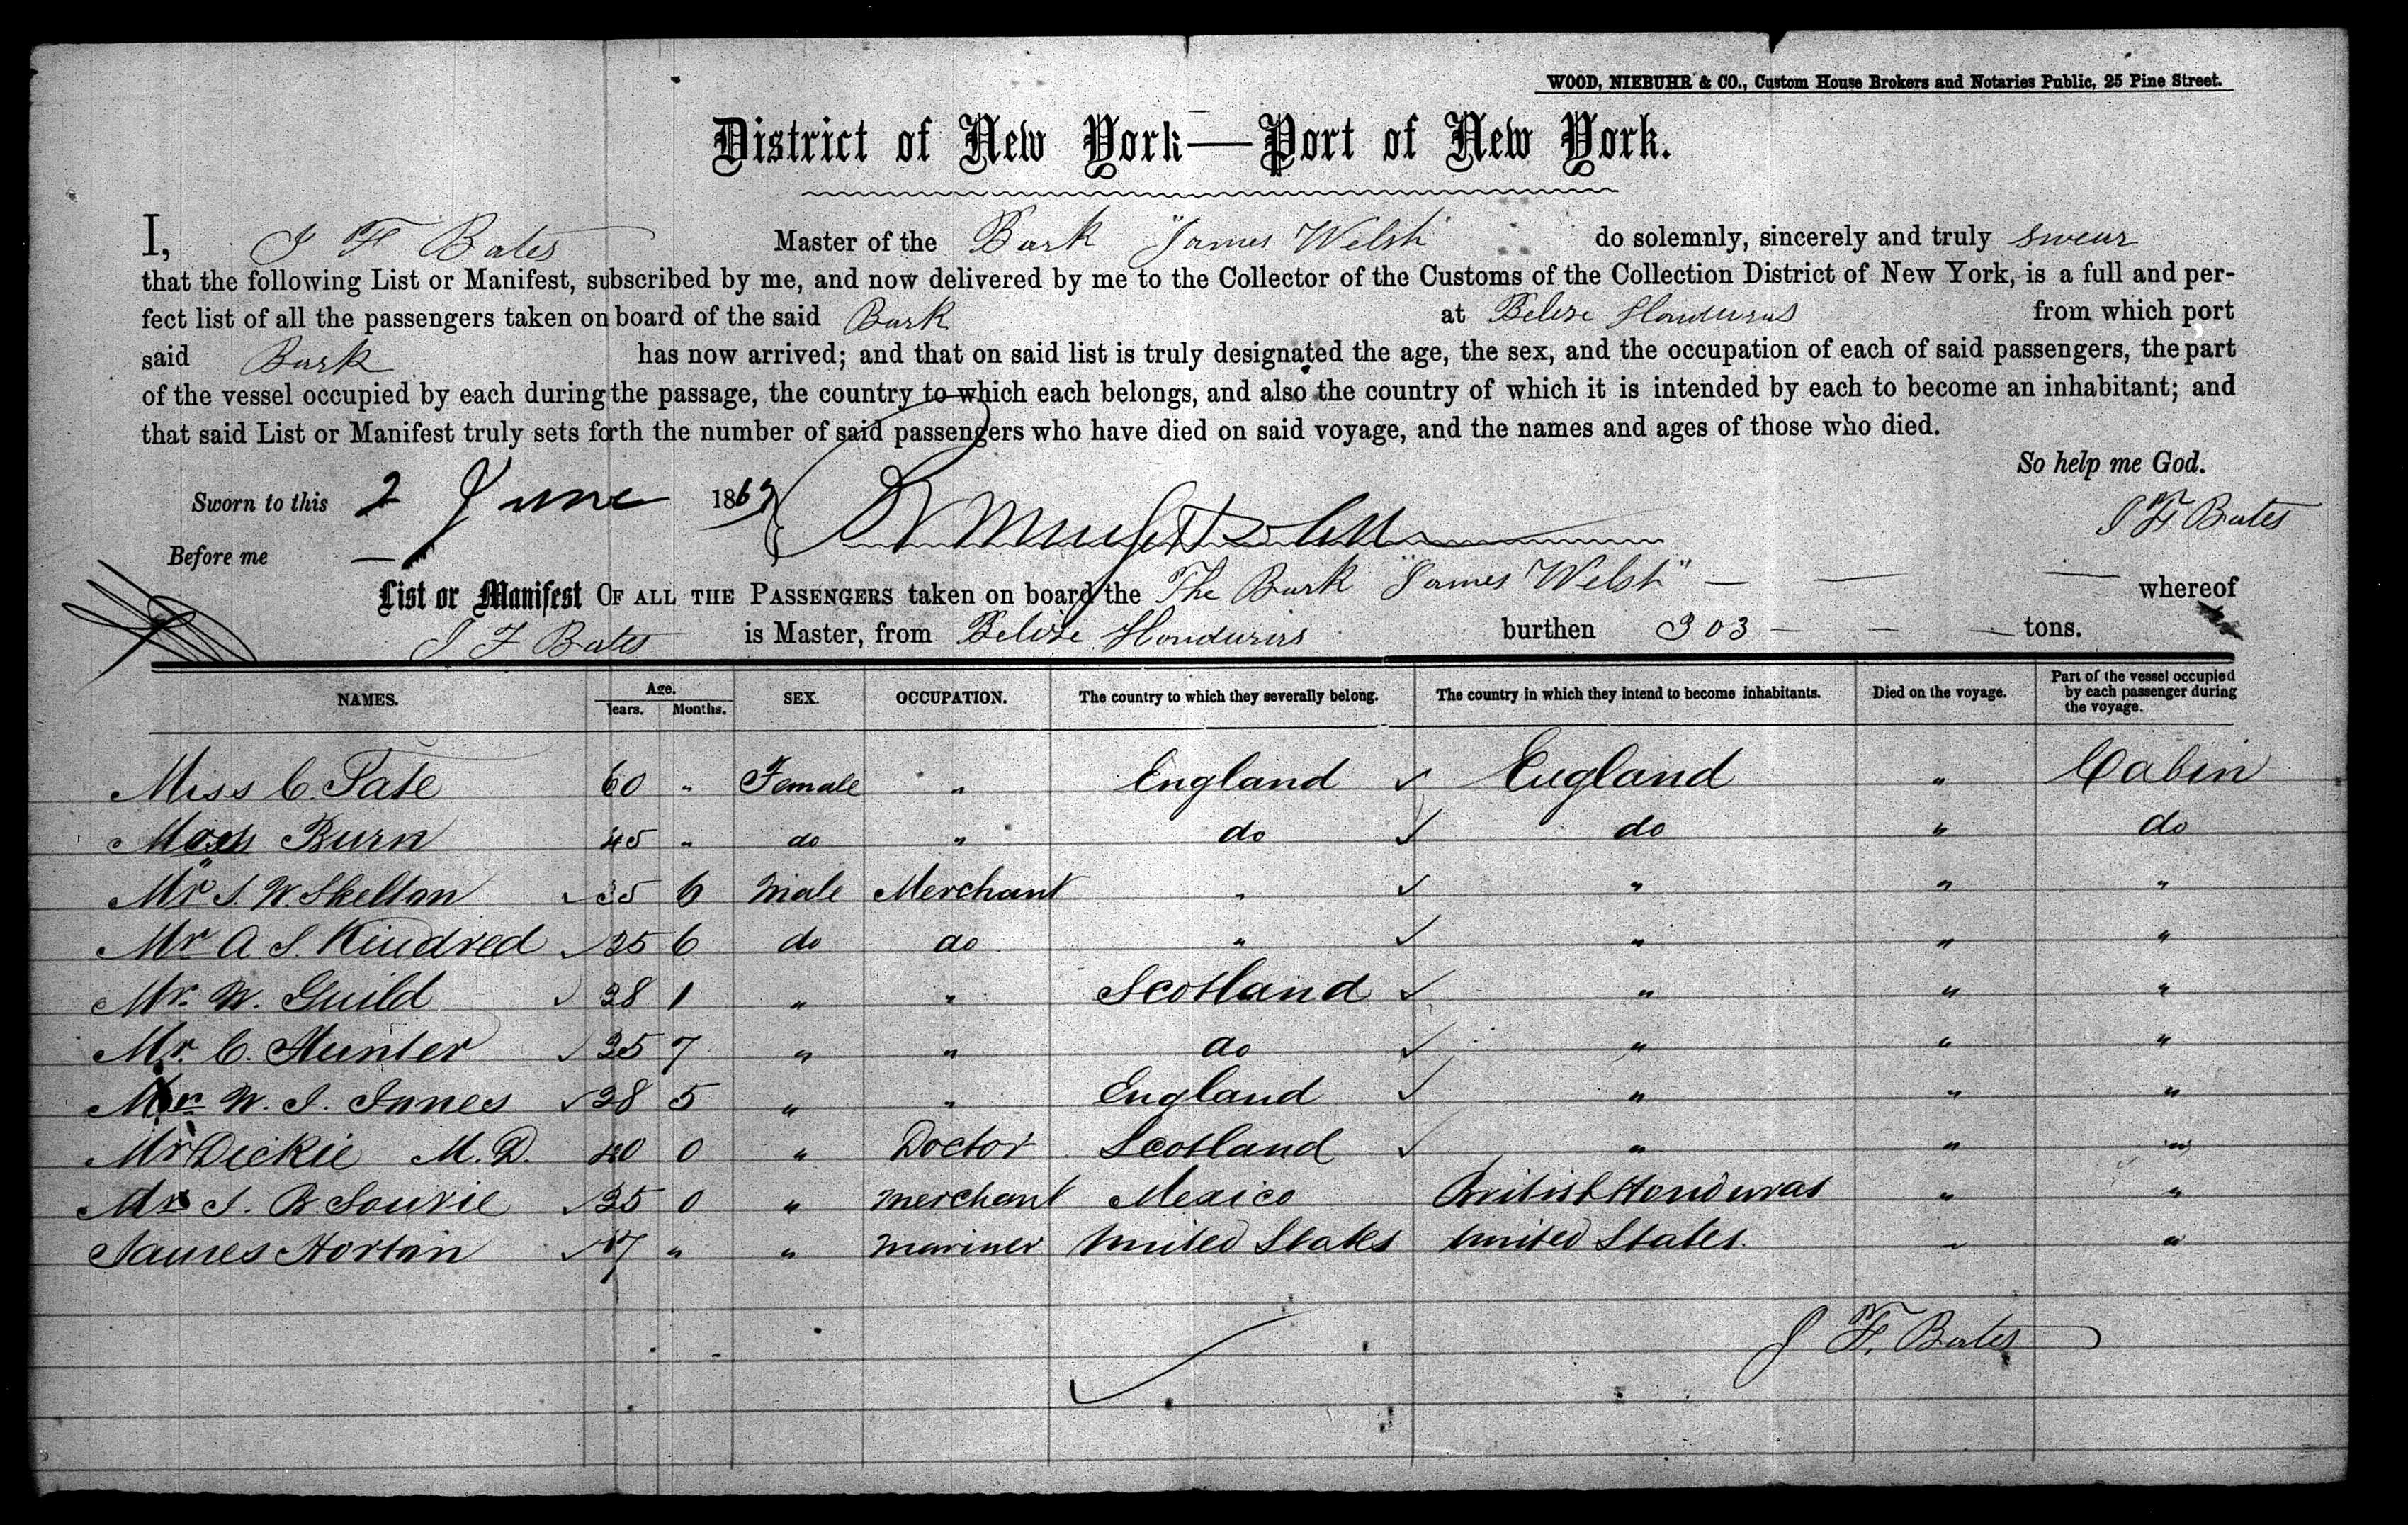 WOOD, NIEBUHR & CO., Custom House Brokers and Notaries Public, 25 Pine Street.
District of New York—Port of New York.
I, J F Bates Master of the Bark "James Welsh" do solemnly, sincerely and truly swear
that the following List or Manifest, subscribed by me, and now delivered by me to the Collector of the Customs of the Collection District of New York, is a full and per-
fect list of all the passengers taken on board of the said Bark at Belize Honduras from which port
said Bark has now arrived; and that on said list is truly designated the age, the sex, and the occupation of each of said passengers, the part
of the vessel occupied by each during the passage, the country to which each belongs, and also the country of which it is intended by each to become an inhabitant; and
that said List or Manifest truly sets forth the number of said passengers who have died on said voyage, and the names and ages of those who died.
So help me God.
Sworn to this 2 June 1869
J F Bates
Before me
List or Manifest OF ALL THE PASSENGERS taken on board the The Bark "James Welsh" — — — whereof
J F Bates is Master, from Belize Honduras burthen 303 — — — tons.
NAMES. Age. Years. Months. SEX. OCCUPATION. The country to which they severally belong. The country in which they intend to become inhabitants. Died on the voyage. Part of the vessel occupied by each passenger during the voyage.
Miss C. Pate 60 " Female " England England " Cabin
Burn 45 " do " do do " do
Mr J. W Skelton 35 6 Male Merchant " " " "
Mr A S. Kindred 25 6 do do " " " "
Mr. W. Guild 28 1 " " Scotland " " "
Mr. C. Hunter 25 7 " " do " " "
Mr W. J. Innes 28 5 " " England " " "
Mr Dickie M.D. 40 0 " Doctor Scotland " " "
Mr J. B Sourie 25 0 " Merchant Mexico British Honduras " "
James Horton 17 " " Mariner United States United States. " "
J F. Bates